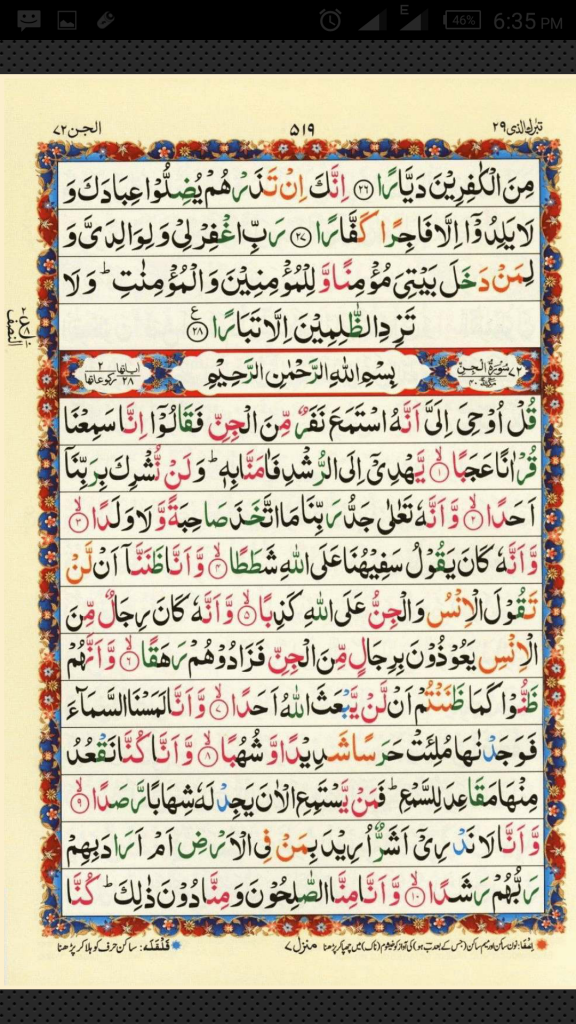 E 46% 6:35 PM
تبٰرک الذی ۲۹ ۵۱۹ الجن ۷۲
مِنَ الْكٰفِرِيْنَ دَيَّارًا ﴿۲۶﴾ اِنَّكَ اِنْ تَذَرْهُمْ يُضِلُّوْا عِبَادَكَ وَ
لَا يَلِدُوْۤا اِلَّا فَاجِرًا كَفَّارًا ﴿۲۷﴾ رَبِّ اغْفِرْ لِيْ وَ لِوَالِدَيَّ وَ
لِمَنْ دَخَلَ بَيْتِيَ مُؤْمِنًا وَّ لِلْمُؤْمِنِيْنَ وَ الْمُؤْمِنٰتِ ؕ وَ لَا
تَزِدِ الظّٰلِمِيْنَ اِلَّا تَبَارًا ﴿۲۸﴾ ع
النصف
۷۲ سُوْرَةُ الْجِنِّ مَكِّيَّةٌ ۴۰ بِسْمِ اللّٰهِ الرَّحْمٰنِ الرَّحِيْمِ اٰيَاتُهَا ۲۸ رُكُوْعَاتُهَا ۲
قُلْ اُوْحِيَ اِلَيَّ اَنَّهُ اسْتَمَعَ نَفَرٌ مِّنَ الْجِنِّ فَقَالُوْۤا اِنَّا سَمِعْنَا
قُرْاٰنًا عَجَبًا ﴿۱﴾ يَّهْدِيْۤ اِلَى الرُّشْدِ فَاٰمَنَّا بِهٖ ؕ وَ لَنْ نُّشْرِكَ بِرَبِّنَاۤ
اَحَدًا ﴿۲﴾ وَّ اَنَّهٗ تَعٰلٰى جَدُّ رَبِّنَا مَا اتَّخَذَ صَاحِبَةً وَّ لَا وَلَدًا ﴿۳﴾
وَّ اَنَّهٗ كَانَ يَقُوْلُ سَفِيْهُنَا عَلَى اللّٰهِ شَطَطًا ﴿۴﴾ وَّ اَنَّا ظَنَنَّاۤ اَنْ لَّنْ
تَقُوْلَ الْاِنْسُ وَ الْجِنُّ عَلَى اللّٰهِ كَذِبًا ﴿۵﴾ وَّ اَنَّهٗ كَانَ رِجَالٌ مِّنَ
الْاِنْسِ يَعُوْذُوْنَ بِرِجَالٍ مِّنَ الْجِنِّ فَزَادُوْهُمْ رَهَقًا ﴿۶﴾ وَّ اَنَّهُمْ
ظَنُّوْا كَمَا ظَنَنْتُمْ اَنْ لَّنْ يَّبْعَثَ اللّٰهُ اَحَدًا ﴿۷﴾ وَّ اَنَّا لَمَسْنَا السَّمَآءَ
فَوَجَدْنٰهَا مُلِئَتْ حَرَسًا شَدِيْدًا وَّ شُهُبًا ﴿۸﴾ وَّ اَنَّا كُنَّا نَقْعُدُ
مِنْهَا مَقَاعِدَ لِلسَّمْعِ ؕ فَمَنْ يَّسْتَمِعِ الْاٰنَ يَجِدْ لَهٗ شِهَابًا رَّصَدًا ﴿۹﴾
وَّ اَنَّا لَا نَدْرِيْۤ اَشَرٌّ اُرِيْدَ بِمَنْ فِي الْاَرْضِ اَمْ اَرَادَ بِهِمْ
رَبُّهُمْ رَشَدًا ﴿۱۰﴾ وَّ اَنَّا مِنَّا الصّٰلِحُوْنَ وَ مِنَّا دُوْنَ ذٰلِكَ ؕ كُنَّا
اِخْفَا: نون ساکن اور میم ساکن (جس کے بعد ب ہو) کی آواز کو خیشوم (ناک) میں چھپا کر پڑھنا منزل ۷ قَلْقَلَه: ساکن حرف کو ہلا کر پڑھنا